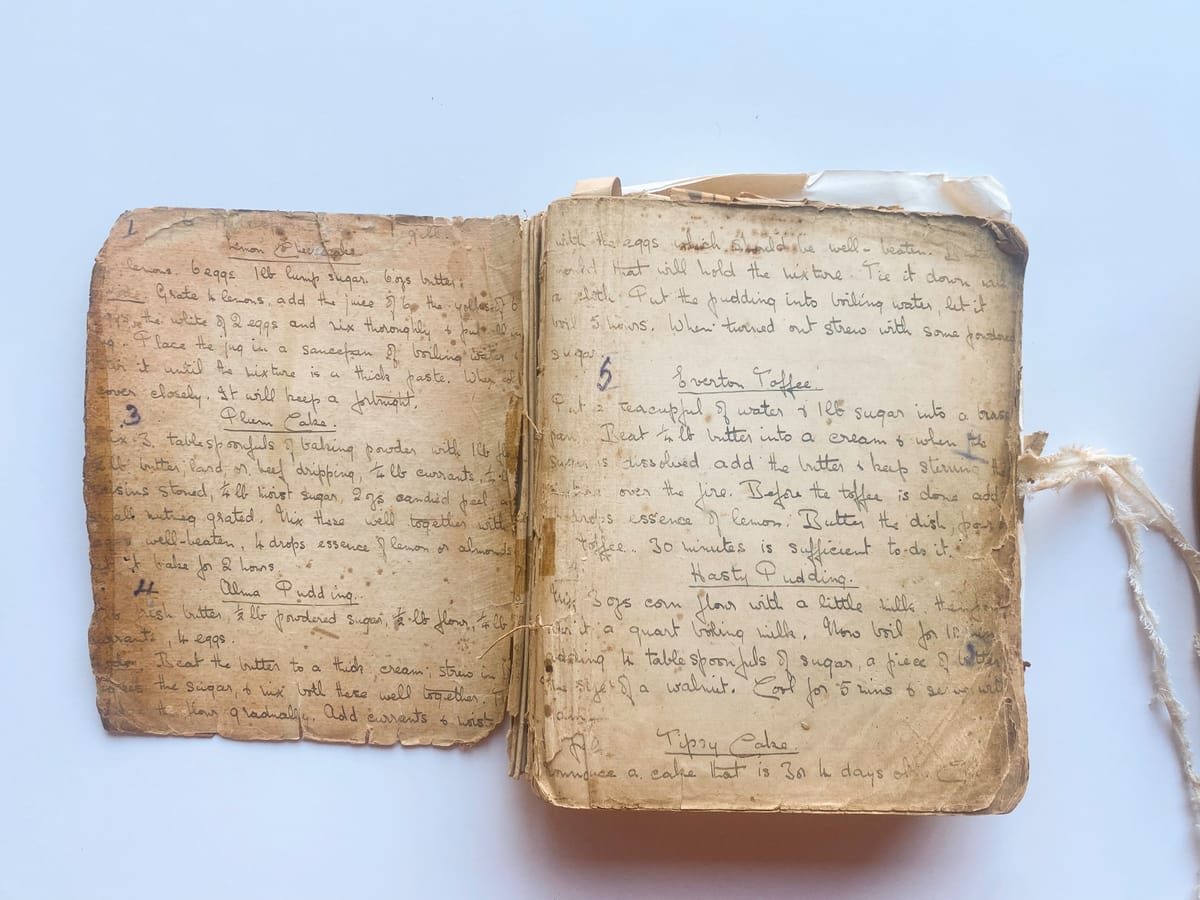 1
Lemon Cheesecake.
lemons. 6 eggs 1lb lump sugar. 6 ozs butter.
Grate 4 lemons, add the juice of 6, the yolks of 6
the white of 2 eggs and mix thoroughly & put all in
Place the jug in a saucepan of boiling water &
it until the mixture is a thick paste. When
cover closely. It will keep a fortnight.
3
Plum Cake.
3 tablespoonfuls of baking powder with 1lb
butter, lard, or beef dripping, ¼ lb currants,
stoned, ¼ lb moist sugar, 2 ozs candied peel
small nutmeg grated. Mix these well together with
well-beaten, 4 drops essence of lemon or almonds
it bake for 2 hours.
4
Alma Pudding.
fresh butter, ½ lb powdered sugar, ½ lb flour, ¼ lb
currants, 4 eggs.
Beat the butter to a thick cream, strew in
the sugar, & mix both these well together,
the flour gradually. Add currants & moist
with the eggs which should be well-beaten.
mould that will hold the mixture. Tie it down
a cloth. Put the pudding into boiling water, let it
boil 5 hours. When turned out strew with some powdered
sugar
5
Everton Toffee.
Put a teacupful of water & 1lb sugar into a brass
pan. Beat ¼ lb butter into a cream & when the
sugar is dissolved add the butter & keep stirring the
mixture over the fire. Before the toffee is done add
drops essence of lemon. Butter the dish, pour
toffee.. 30 minutes is sufficient to do it.
Hasty Pudding.
Mix 3 ozs corn flour with a little milk, then
it a quart boiling milk. Now boil for
adding 4 tablespoonfuls of sugar, a piece of butter
the size of a walnut. Cool for 5 mins & serve with
jam
Tipsy Cake.
a cake that is 3 or 4 days old.